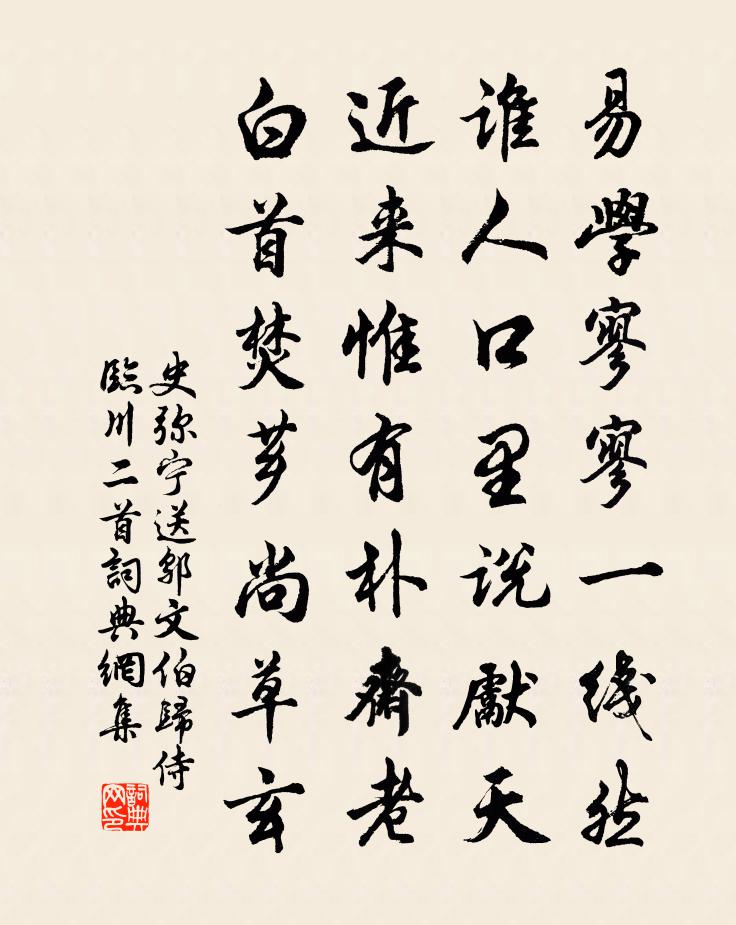 易學寥寥一綫然
誰人口里説獻天
近来惟有朴齋老
白首焚芗尚草玄
史弥宁送鄔文伯歸侍
臨川二首詞典網集
詞典网印